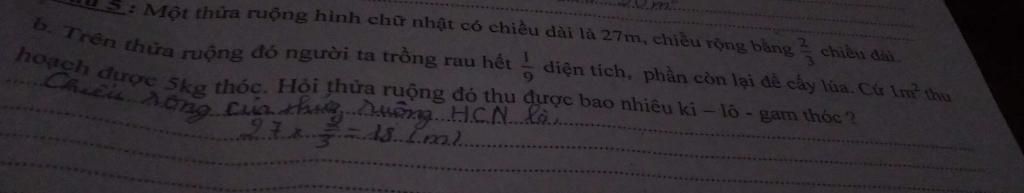 5 : Một thửa ruộng hình chữ nhật có chiều dài là 27m, chiều rộng bằng 2/3 chiều dài.
b. Trên thửa ruộng đó người ta trồng rau hết 1/9 diện tích, phần còn lại để cấy lúa. Cứ 1m² thu
hoạch được 5kg thóc. Hỏi thửa ruộng đó thu được bao nhiêu ki – lô - gam thóc ?
Chiều rộng của thửa ruộng HCN là
27 x 2/3 = 18 (m)